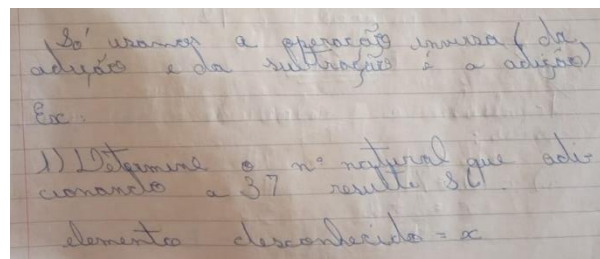 Só usamos a operação inversa (da
adição e da subtração é a adição)
Ex:
1) Determine o nº natural que adi-
cionando a 37 resulte
elemento desconhecido = x